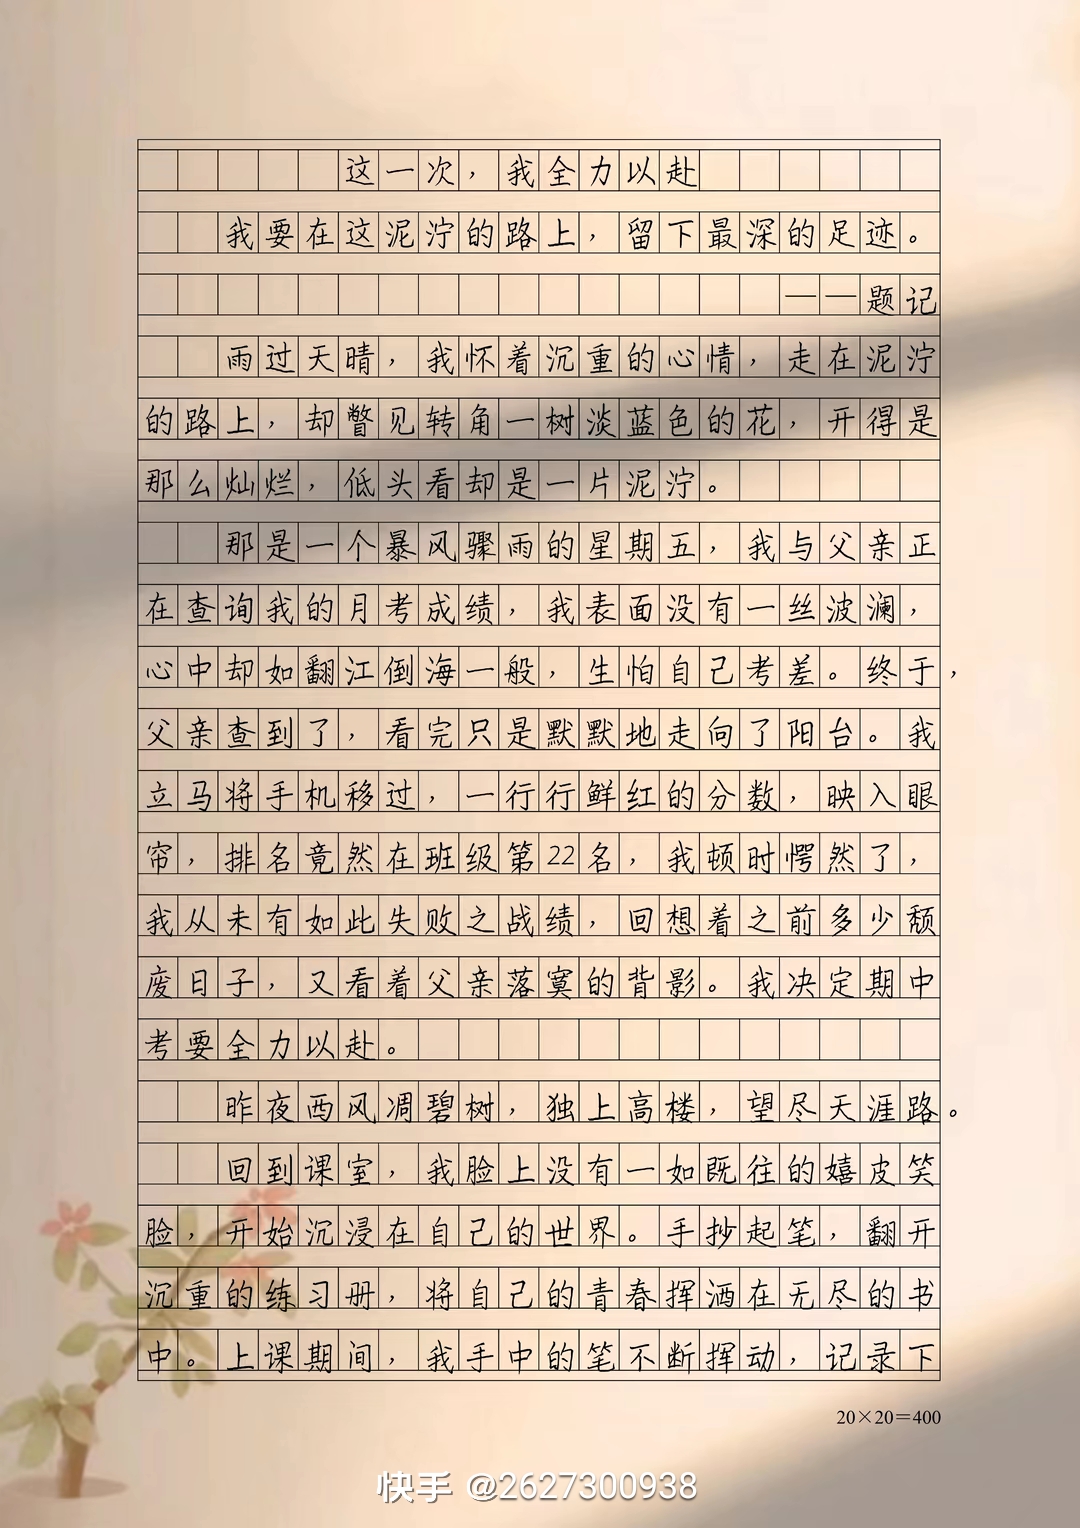 这一次，我全力以赴
我要在这泥泞的路上，留下最深的足迹。
——题记
雨过天晴，我怀着沉重的心情，走在泥泞
的路上，却瞥见转角一树淡蓝色的花，开得是
那么灿烂，低头看却是一片泥泞。
那是一个暴风骤雨的星期五，我与父亲正
在查询我的月考成绩，我表面没有一丝波澜，
心中却如翻江倒海一般，生怕自己考差。终于，
父亲查到了，看完只是默默地走向了阳台。我
立马将手机移过，一行行鲜红的分数，映入眼
帘，排名竟然在班级第22名，我顿时愕然了，
我从未有如此失败之战绩，回想着之前多少颓
废日子，又看着父亲落寞的背影。我决定期中
考要全力以赴。
昨夜西风凋碧树，独上高楼，望尽天涯路。
回到课室，我脸上没有一如既往的嬉皮笑
脸，开始沉浸在自己的世界。手抄起笔，翻开
沉重的练习册，将自己的青春挥洒在无尽的书
中。上课期间，我手中的笔不断挥动，记录下
20×20=400
快手 @2627300938